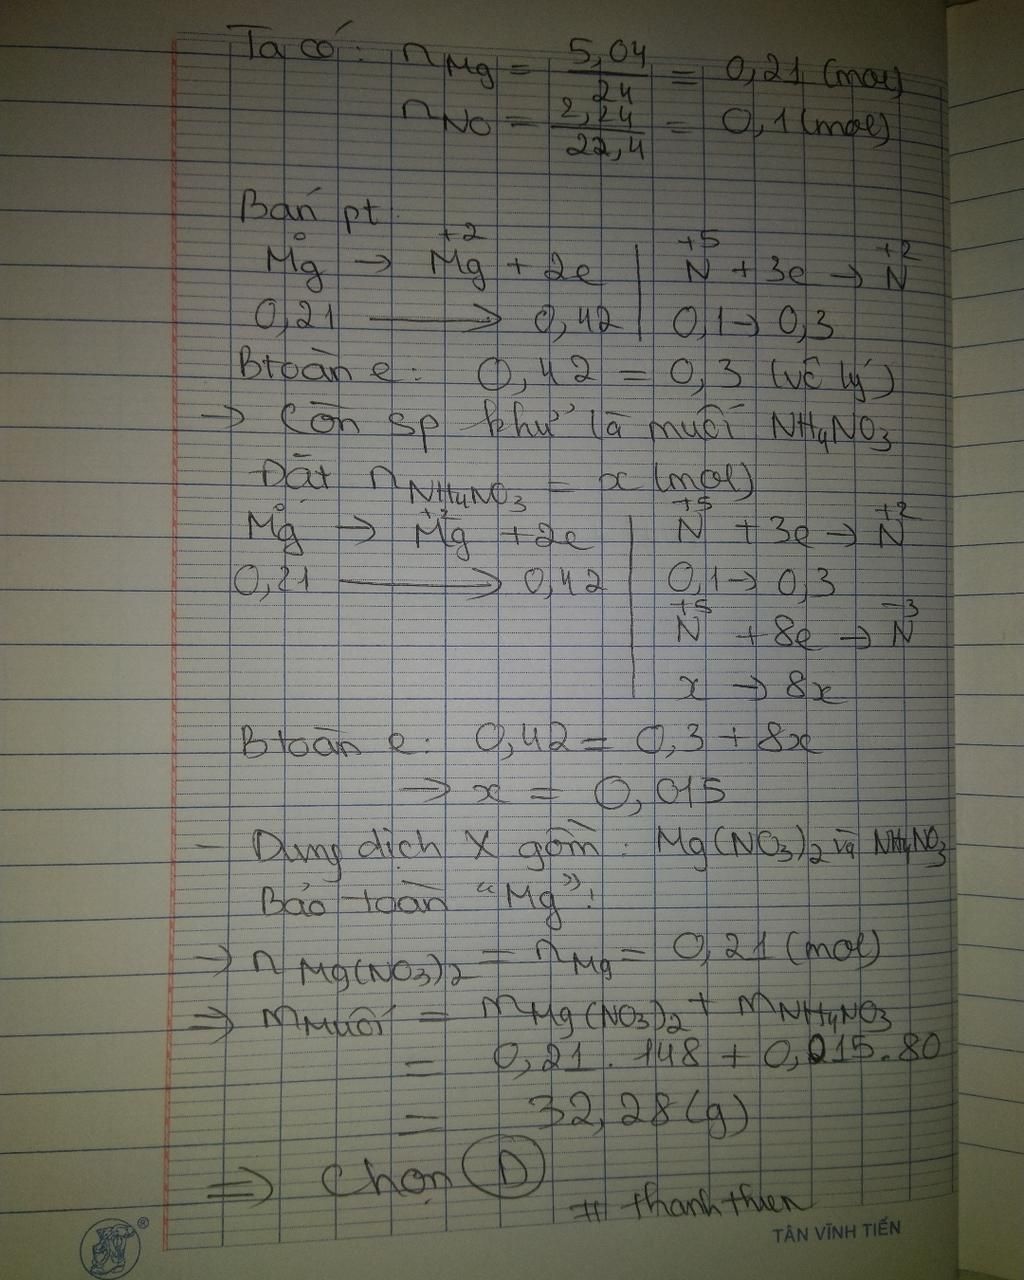 Ta có: nMg = 5,04/24 = 0,21 (mol)
nNO = 2,24/22,4 = 0,1 (mol)
Bán pt
Mg⁰ → Mg⁺² + 2e | N⁺⁵ + 3e → N⁺²
0,21 → 0,42 | 0,1 → 0,3
Btoàn e: 0,42 = 0,3 (vô lý)
→ Còn sp khử là muối NH₄NO₃
Đặt nNH₄NO₃ = x (mol)
Mg⁰ → Mg⁺² + 2e | N⁺⁵ + 3e → N⁺²
0,21 → 0,42 | 0,1 → 0,3
N⁺⁵ + 8e → N⁻³
x → 8x
Btoàn e: 0,42 = 0,3 + 8x
→ x = 0,015
- Dung dịch X gồm: Mg(NO₃)₂ và NH₄NO₃
Bảo toàn "Mg":
→ nMg(NO₃)₂ = nMg = 0,21 (mol)
⇒ mMuối = mMg(NO₃)₂ + mNH₄NO₃
= 0,21 . 148 + 0,015 . 80
= 32,28 (g)
⇒ Chọn D
# thanhthien
®
TÂN VĨNH TIẾN